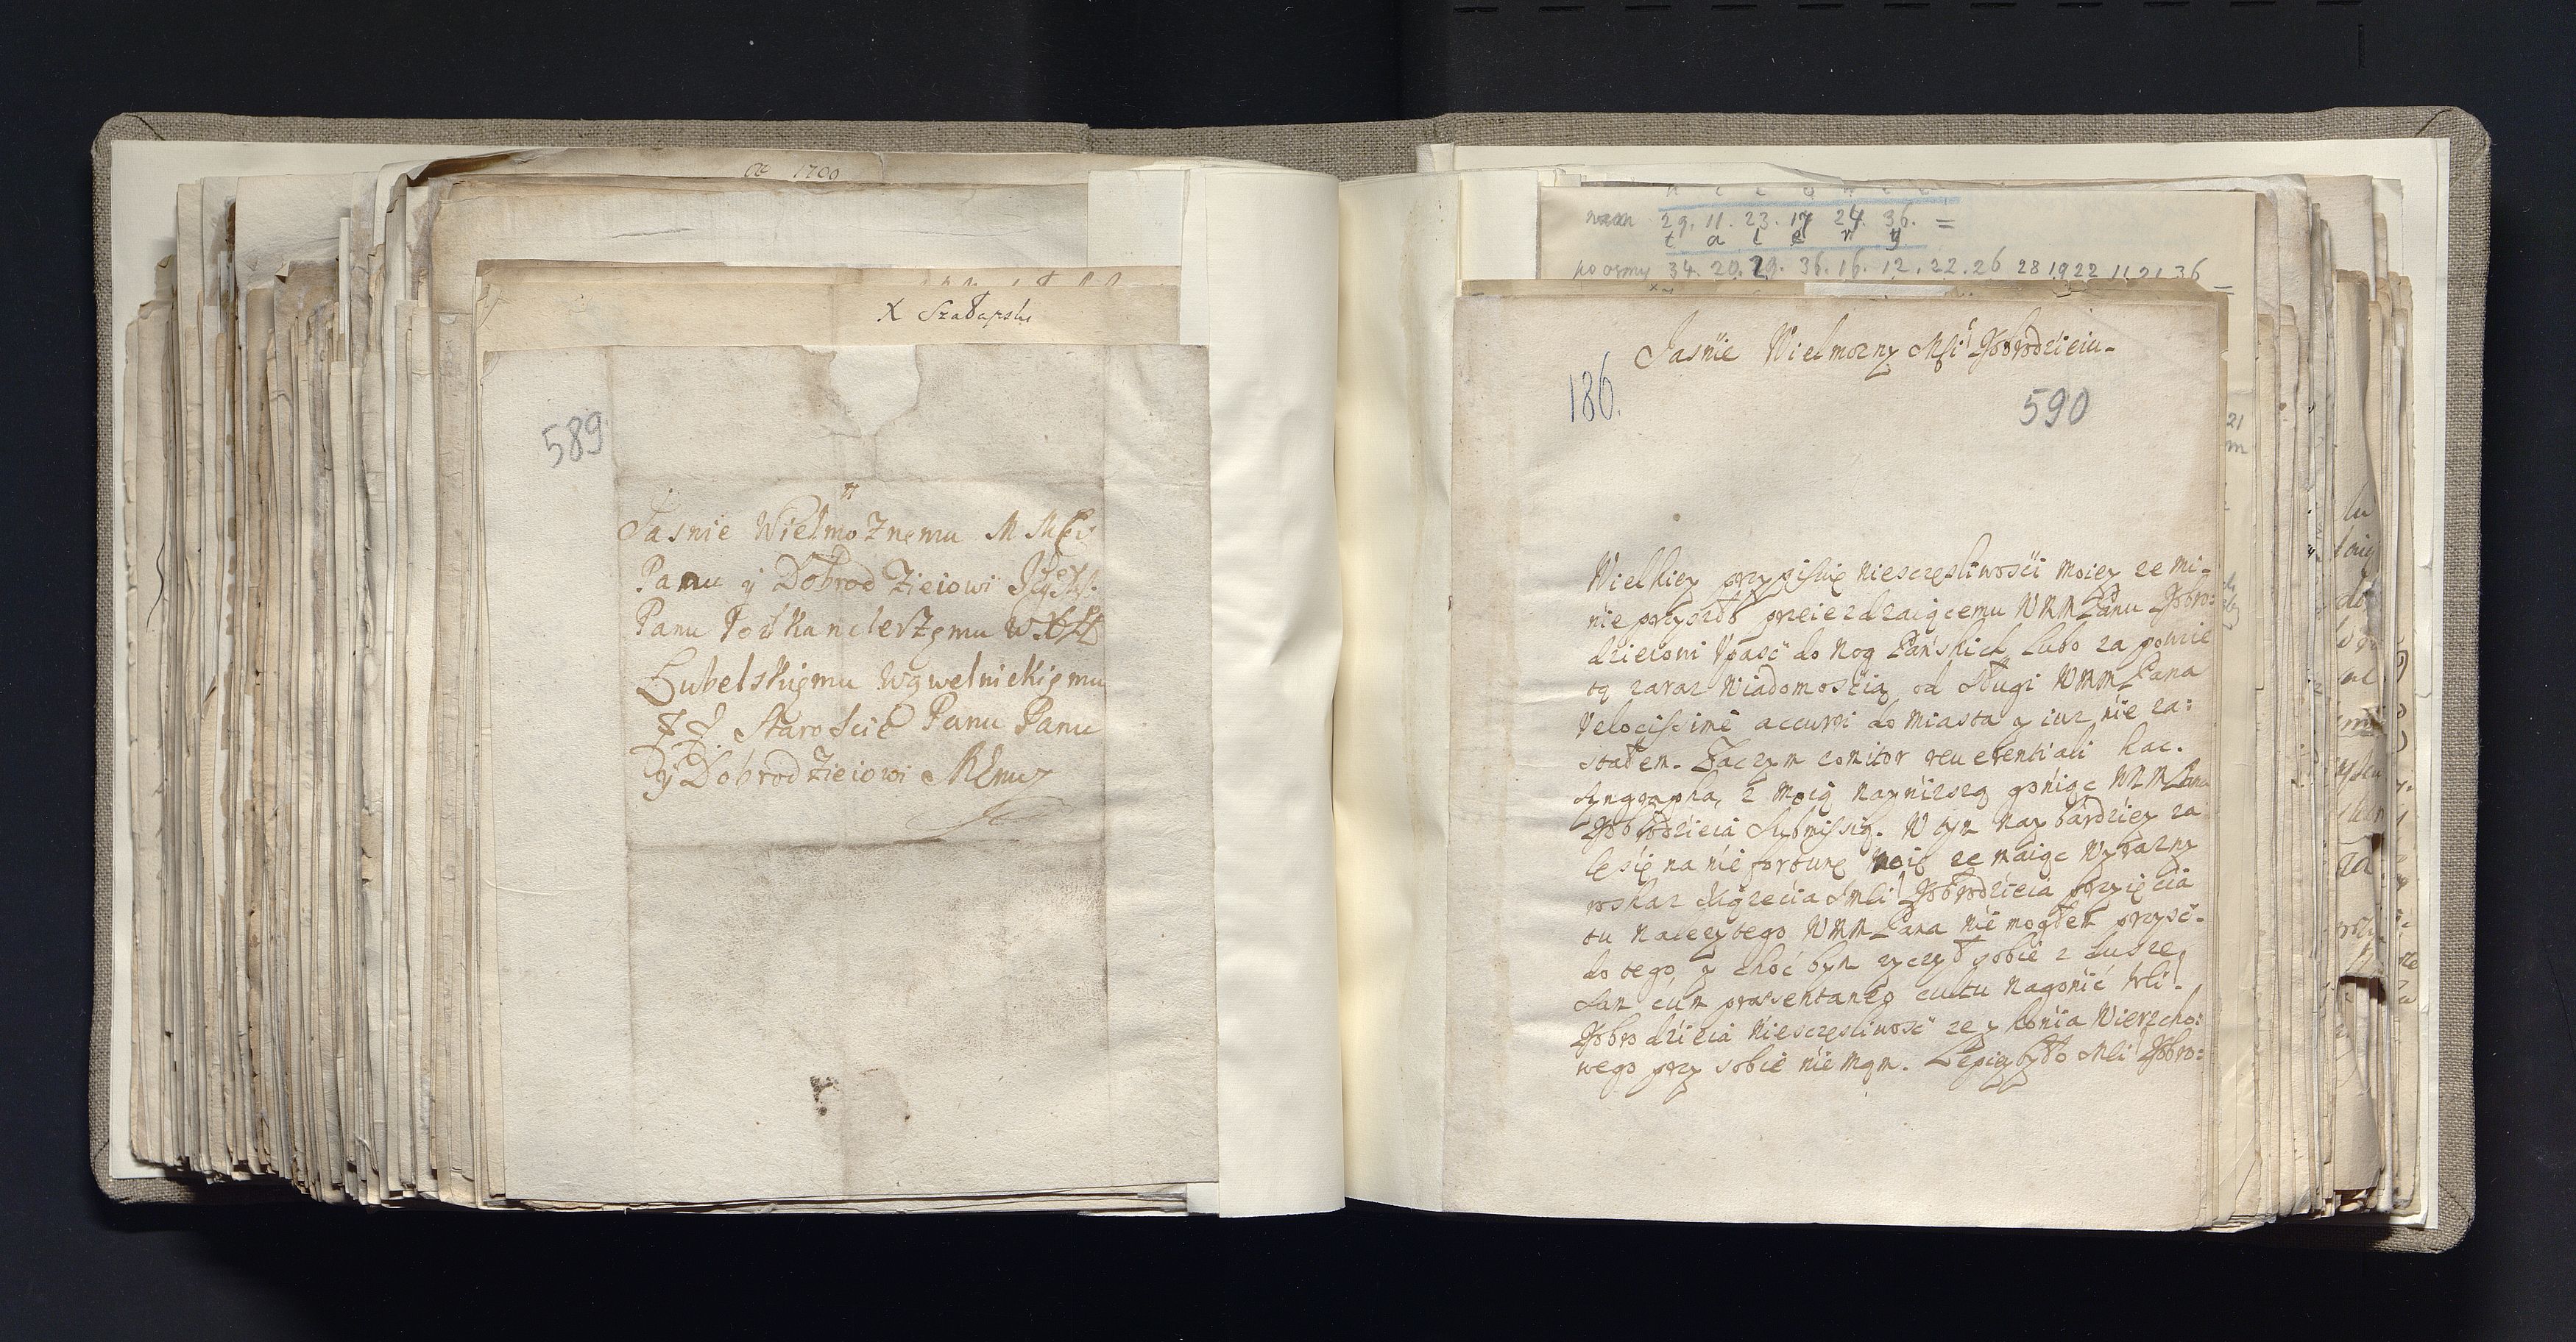 1700
X Szadurski
589
Jasnie Wielmoznemu M Mci
Panu y Dobrodzieiowi
Panu Podkanclerzemu W
Lubelskiemu Wąwelnickiemu
Staroscie Panu Panu
y Dobrodzieiowi
29. 11. 23. 17 24. 36. =
t a l e r y
34. 20. 29. 36. 16. 12. 22. 26 28 19 22 11 21 36
Jasnie Wielmozny Mci Dobrodzieiu
186.
590
Wielkiey przypisuię niesczęsliwosci moiey ze mi-
nie przyszło przeiezdzaiącemu WMM Panu Dobro:
dzieiowi Upasc do Nog Panskich Lubo za powzie
tą zaraz Wiadomoscią od Sługi WMM Pana
Velocissime accurri do Miasta y iuz nie za:
stałem. Zaczym comitor reverentiali hac.
Syngrapha, z Moią Naynizszą goniąc WMM Pana
Dobrodzieia Submissią. W tym Naybardziey za
lę się na nie fortunę Moię ze maiąc Wyrazny
roskaz Xiązecia Jmci Dobrodzieia przyięcia
tu Nalezytego WMM Pana nie mogłem przysc
do tego, y choc bym zyczył sobie z Dusze
Sam cum præsentaneo cultu Nagonic
Dobrodzieia Niesczęsliwosc ze y konia Wierzcho:
wego przy sobie nie mąm. Lepiey było Mci Dobro: